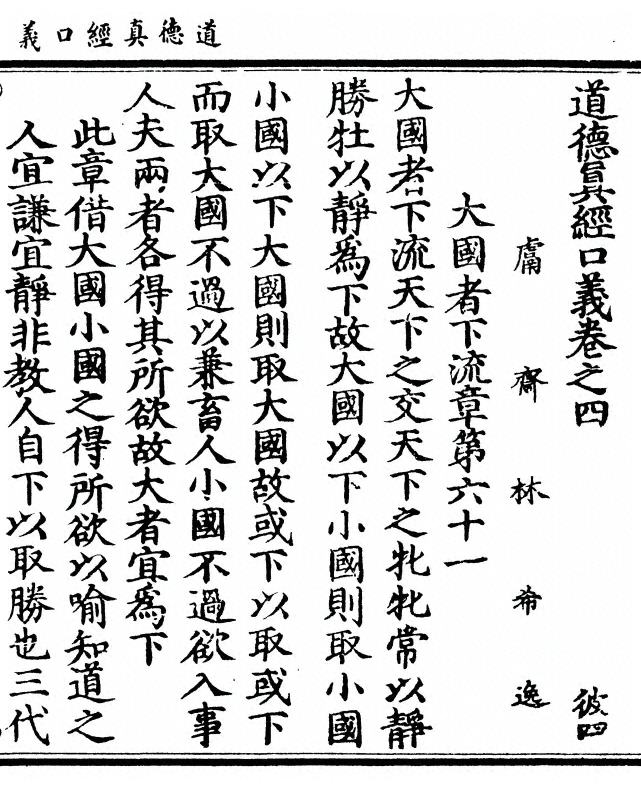 道德真經口義
道德眞經口義卷之四 彼四
鬳齋林希逸
大國者下流章第六十一
大國者下流天下之交天下之牝牝常以靜
勝牡以靜爲下故大國以下小國則取小國
小國以下大國則取大國故或下以取或下
而取大國不過以兼畜人小國不過欲入事
人夫兩者各得其所欲故大者宜爲下
此章借大國小國之得所欲以喻知道之
人宜謙宜靜非教人自下以取勝也三代